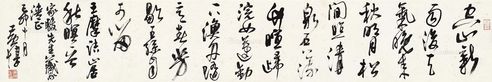 空山新
雨後天
氣晚來
秋明月松
間照清
泉石上流
竹喧歸
浣女蓮動
下漁舟隨
意春芳
歇王孫自
可留
王摩詰山居
秋暝
先生
正
十月